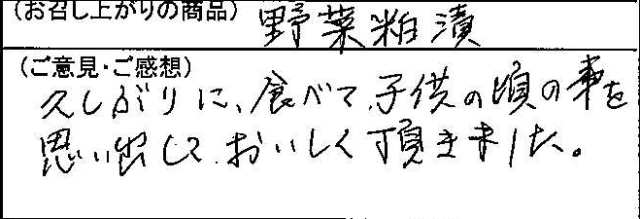 (お召し上がりの商品) 野菜粕漬
(ご意見・ご感想)
久しがりに、食べて、子供の頃の事を
思い出して、おいしく頂きました。